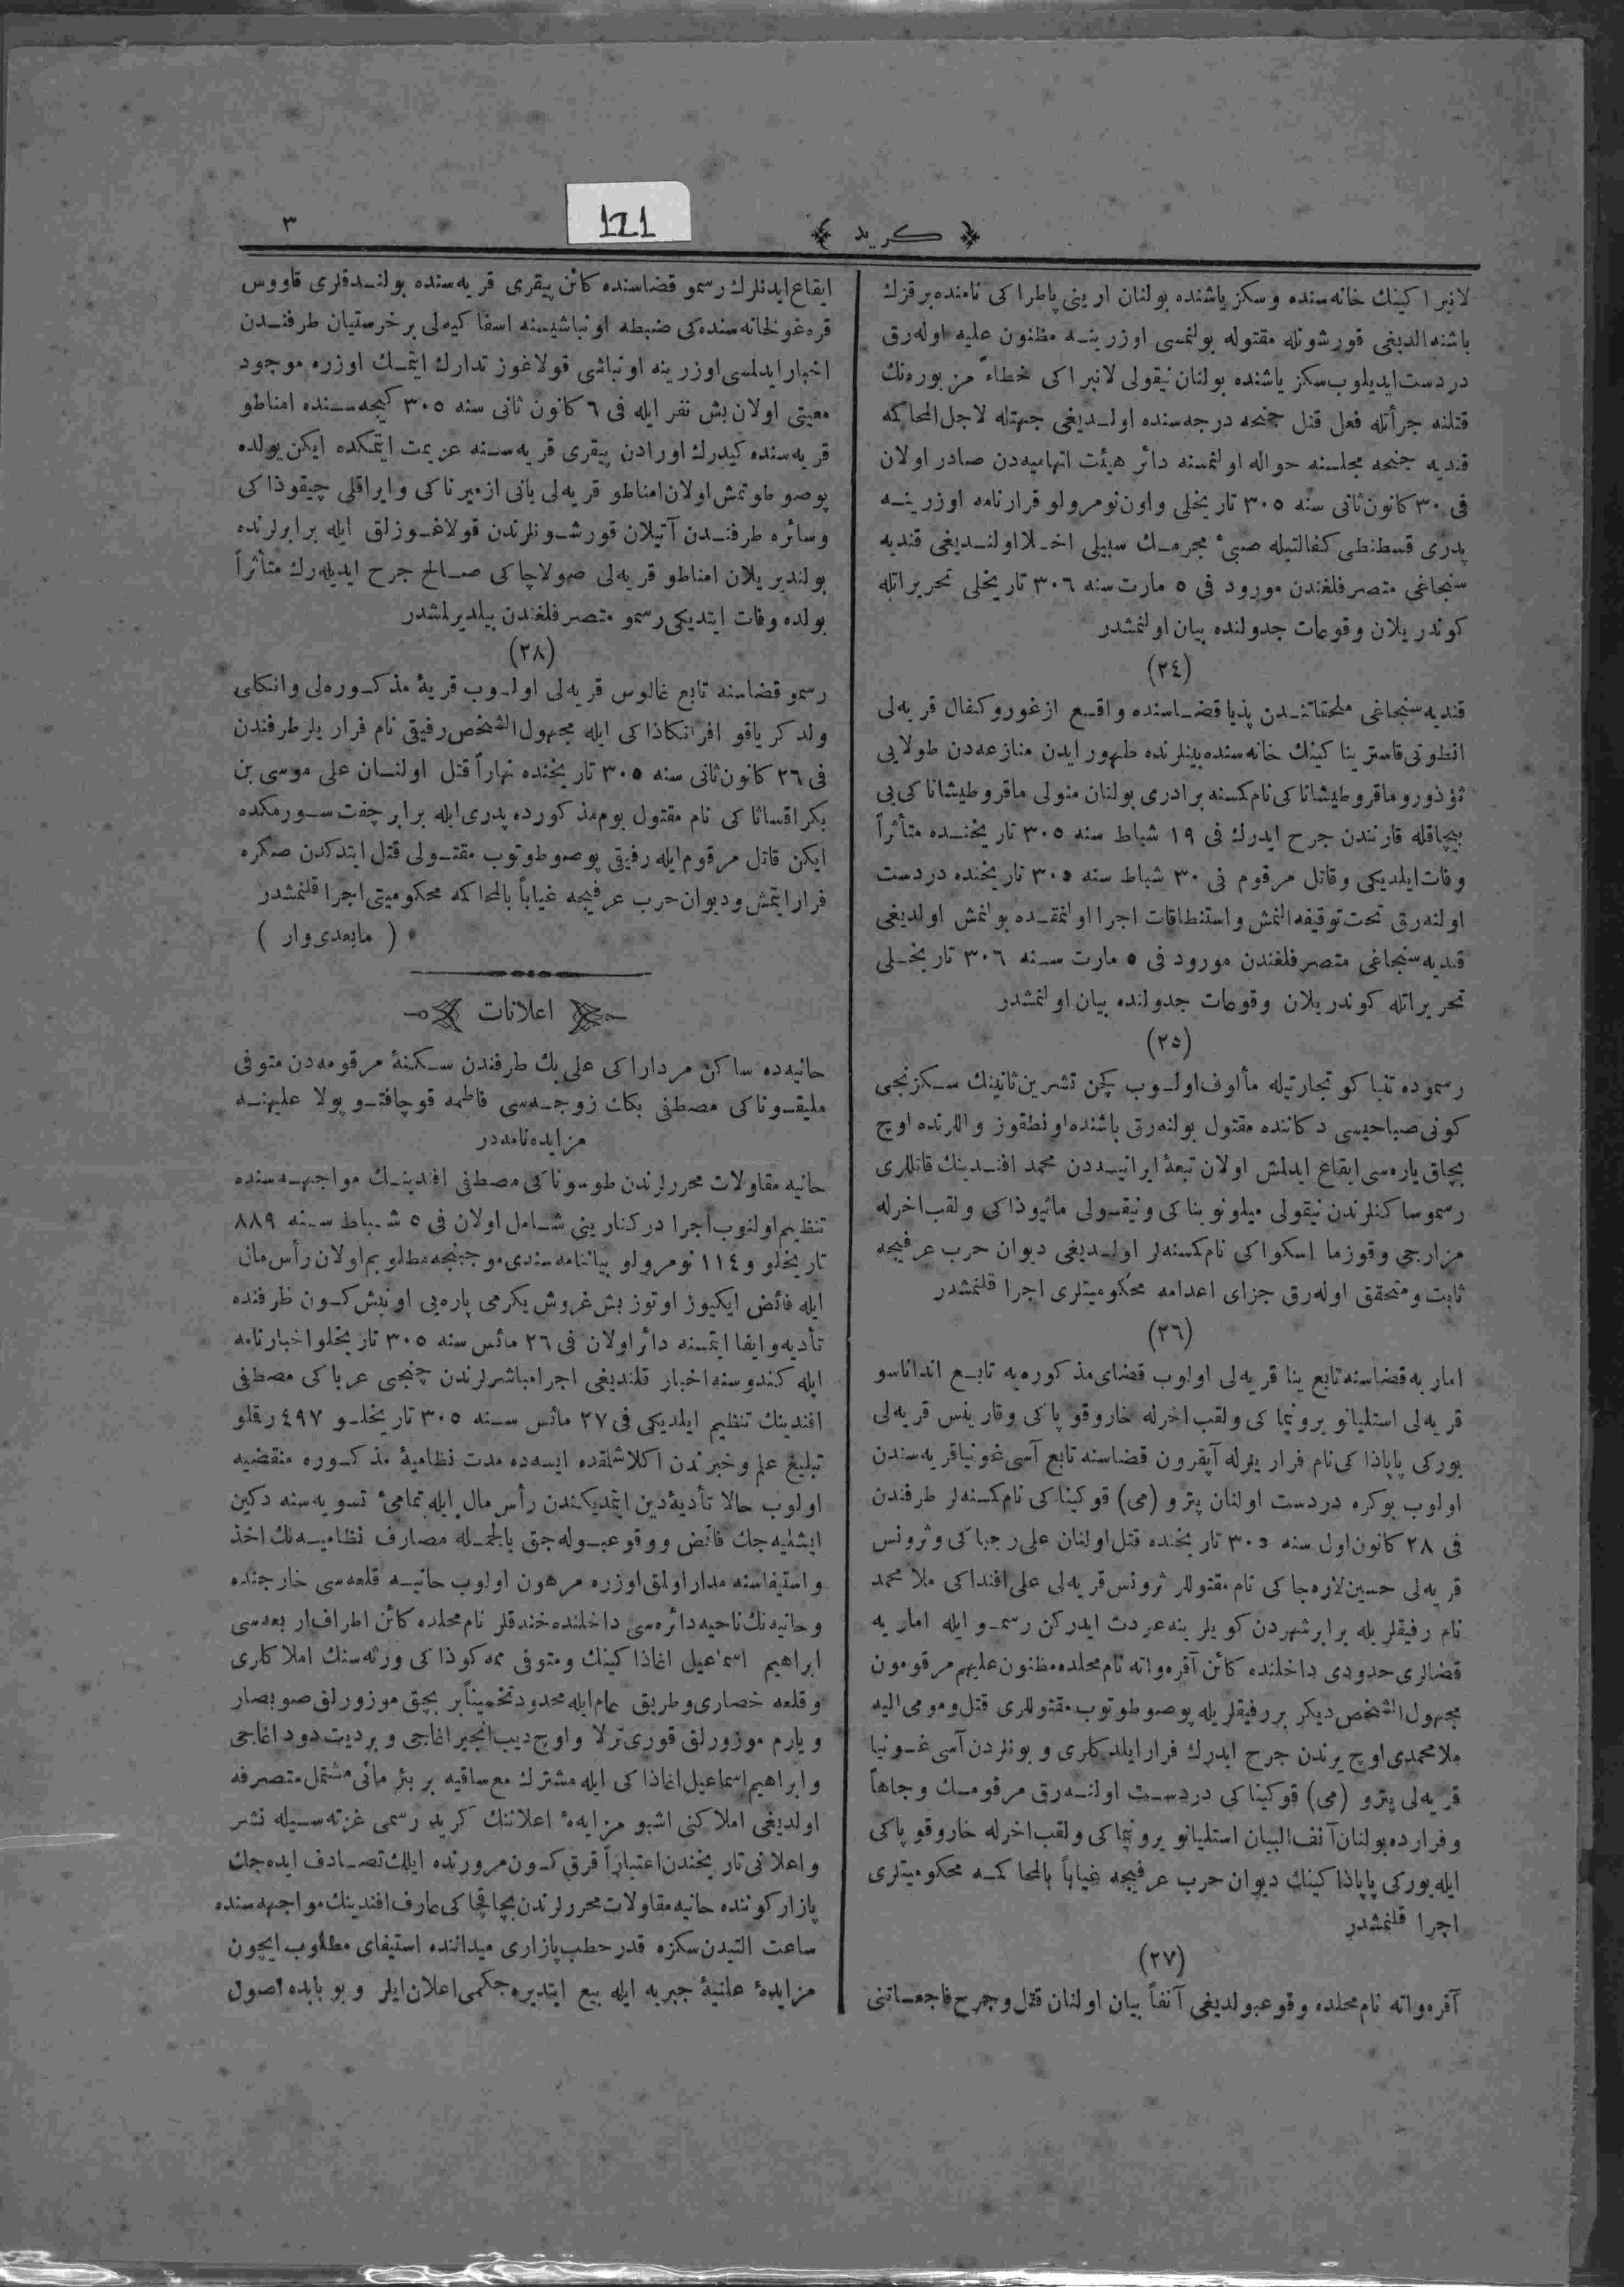 ٣
121
كريد
لانبراكينك خانه‌سنده وسكز ياشنده بولنان اريني پاطراكى نامنده بر قزك
باشنه الديغى قورشونله مقتوله بولنمسى اوزرينه مظنون عليه اوله‌رق
دردست ايديلوب سكز ياشنده بولنان نيقولى لانبراكى خطاءً مزبوره‌نك
قتلنه جرأتله فعل قتل جنحه درجه‌سنده اولديغى جهتله لاجل المحاكمه
قنديه جنحه مجلسنه حواله اولنمسنه دائر هيئت اتهاميه‌دن صادر اولان
فى ٣٠ كانون ثانى سنه ٣٠٥ تاريخلى واون نومرولو قرارنامه اوزرينه
پدرى قسطنطى كفالتيله صبئ مجرمك سبيلى اخلا اولنديغى قنديه
سنجاغى متصرفلغندن مورود فى ٥ مارت سنه ٣٠٦ تاريخلى تحريراتله
كوندريلان وقوعات جدولنده بيان اولنمشدر
(٢٤)
قنديه سنجاغى ملحقاتندن پذيا قضاسنده واقع ازغوروكفال قريه‌لى
انطونى قاستريناكينك خانه‌سنده بينلرنده ظهور ايدن منازعه‌دن طولايى
ثؤذورو ماقروطيشاناكى نام كمسنه برادرى بولنان منولى ماقروطيشاناكى‌يى
بيچاقله قارنندن جرح ايدرك فى ١٩ شباط سنه ٣٠٥ تاريخنده متأثراً
وفات ايلديكى وقاتل مرقوم فى ٣٠ شباط سنه ٣٠٥ تاريخنده دردست
اولنه‌رق تحت توقيفه النمش واستنطاقات اجرا اولنمقده بولنمش اولديغى
قنديه سنجاغى متصرفلغندن مورود فى ٥ مارت سنه ٣٠٦ تاريخلى
تحريراتله كوندريلان وقوعات جدولنده بيان اولنمشدر
(٢٥)
رسموده تنباكو تجارتيله مألوف اولوب كچن تشرين ثانينك سكزنجى
كونى صباحيسى دكاننده مقتول بولنه‌رق باشنده اونطقوز واللرنده اوچ
بچاق ياره‌سى ايقاع ايدلمش اولان تبعهٔ ايرانيه‌دن محمد افندينك قاتللرى
رسمو ساكنلرندن نيقولى ميلونويناكى ونيقولى مانيوذاكى ولقب اخرله
مزارجى وقوزما اسكواكى نام كمسنه‌لر اولديغى ديوان حرب عرفيجه
ثابت ومتحقق اوله‌رق جزاى اعدامه محكوميتلرى اجرا قلنمشدر
(٢٦)
اماريه قضاسنه تابع ينا قريه‌لى اولوب قضاى مذكوره‌يه تابع انداناسو
قريه‌لى استليانو يرونيماكى ولقب اخرله خاروقوپاكى وقارينس قريه‌لى
يوركى پاپاذاكى نام فراريلرله آپقرون قضاسنه تابع آسى غونيا قريه‌سندن
اولوب بوكره دردست اولنان پترو (مى) قوكيناكى نام كمسنه‌لر طرفندن
فى ٢٨ كانون اول سنه ٣٠٥ تاريخنده قتل اولنان على رجباكى وثرونس
قريه‌لى حسين لاره‌جاكى نام مقتوللر ثرونس قريه‌لى على افنداكى ملا محمد
نام رفيقلريله برابر شهردن كويلرينه عودت ايدركن رسمو ايله اماريه
قضالرى حدودى داخلنده كائن آقره‌واته نام محلده مظنون عليهم مرقومون
مجهول الشخص ديكر بر رفيقلريله پوصو طوتوب مقتوللرى قتل ومومى اليه
ملا محمدى اوچ يرندن جرح ايدرك فرار ايلدكلرى وبونلردن آسى غونيا
قريه‌لى پترو (مى) قوكيناكى دردست اولنه‌رق مرقومك وجاهاً
وفرارده بولنان آنف البيان استليانو يرونيماكى ولقب اخرله خاروقوپاكى
ايله يوركى پاپاذاكينك ديوان حرب عرفيجه غياباً بالمحاكمه محكوميتلرى
اجرا قلنمشدر
(٢٧)
آقره‌واته نام محلده وقوعبولديغى آنفاً بيان اولنان قتل وجرح فاجعه‌اتنى
ايقاع ايدنلرك رسمو قضاسنده كائن پيقرى قريه‌سنده بولندقلرى قاووس
قره‌غولخانه‌سنده‌كى ضبطه اونباشيسنه اسفاكيه‌لى بر خرستيان طرفندن
اخبار ايدلمسى اوزرينه اونباشى قولاغوز تدارك ايتمك اوزره موجود
معيتى اولان بش نفر ايله فى ٦ كانون ثانى سنه ٣٠٥ كيجه‌سنده امناطو
قريه‌سنده كيدرك اورادن پيقرى قريه‌سنه عزيمت ايتمكده ايكن يولده
پوصو طوتمش اولان امناطو قريه‌لى يانى ازميرناكى وايراقلى چيقوذاكى
وسائره طرفندن آتيلان قورشونلرندن قولاغوزلق ايله برابرلرنده
بولنديريلان امناطو قريه‌لى صولاچاكى صالح جرح ايديله‌رك متأثراً
يولده وفات ايتديكى رسمو متصرفلغندن بيلديرلمشدر
(٢٨)
رسمو قضاسنه تابع غالوس قريه‌لى اولوب قريهٔ مذكوره‌لى وانكلى
ولد كرياقو افرانكاذاكى ايله مجهول الشخص رفيقى نام فراريلر طرفندن
فى ٢٦ كانون ثانى سنه ٣٠٥ تاريخنده نهاراً قتل اولنان على موسى بن
بكر اقساثاكى نام مقتول يوم مذكورده پدرى ايله برابر چفت سورمكده
ايكن قاتل مرقوم ايله رفيقى پوصو طوتوب مقتولى قتل ايتدكدن صكره
فرار ايتمش وديوان حرب عرفيجه غياباً بالمحاكمه محكوميتى اجرا قلنمشدر
( مابعدى وار )
اعلانات
حانيه‌ده ساكن مرداراكى على بك طرفندن سكنهٔ مرقومه‌دن متوفى
مليقوناكى مصطفى بكك زوجه‌سى فاطمه قوچافتوپولا عليهنه
مزايده‌نامه‌در
حانيه مقاولات محررلرندن طوسوناكى مصطفى افندينك مواجهه‌سنده
تنظيم اولنوب اجرا دركنارينى شامل اولان فى ٥ شباط سنه ٨٨٩
تاريخلو و ١١٤ نومرولو بياننامه سندى موجبنجه مطلوبم اولان رأس مال
ايله فائض ايكيوز اوتوز بش غروش يكرمى پاره‌يى اونبش كون ظرفنده
تأديه وايفا ايتمسنه دائر اولان فى ٢٦ مائس سنه ٣٠٥ تاريخلو اخبارنامه
ايله كندوسنه اخبار قلنديغى اجرا مباشرلرندن چنجى عرباكى مصطفى
افندينك تنظيم ايلديكى فى ٢٧ مائس سنه ٣٠٥ تاريخلو ٤٩٧ رقملو
تبليغ علم وخبرندن اكلاشلقده ايسه‌ده مدت نظاميهٔ مذكوره منقضيه
اولوب حالا تأديهٔ دين ايتمديكندن رأس مال ايله تمامئ تسويه‌سنه دكين
ايشليه‌جك فائض ووقوعبوله‌جق بالجمله مصارف نظاميه‌نك اخذ
واستيفاسنه مدار اولمق اوزره مرهون اولوب حانيه قلعه‌سى خارجنده
وحانيه‌نك ناحيه دائره‌سى داخلنده خندقلر نام محلده كائن اطراف اربعه‌سى
ابراهيم اسماعيل اغاذاكينك ومتوفى ممه كوذاكى ورثه‌سنك املاكلرى
وقلعه خصارى وطريق عام ايله محدود تخميناً بر بچق موزورلق صوبصار
ويارم موزورلق قورى ترلا واوچ ديب انجير اغاجى وبر ديت دود اغاجى
وابراهيم اسماعيل اغاذاكى ايله مشترك مع ساقيه بر بئر مائى مشتمل متصرفه
اولديغى املاكنى اشبو مزايدهٔ اعلاننك كريد رسمى غزته‌سيله نشر
واعلانى تاريخندن اعتباراً قرق كون مرورنده ايلك تصادف ايده‌جك
پازار كوننده حانيه مقاولات محررلرندن بچاقچاكى عارف افندينك مواجهه‌سنده
ساعت التيدن سكزه قدر حطب پازارى ميداننده استيفاى مطلوب ايچون
مزايدهٔ علنيهٔ جبريه ايله بيع ايتديره‌جكمى اعلان ايلر وبو بابده اصول